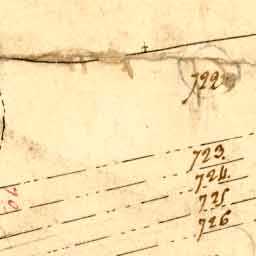 722
723.
724.
725
726